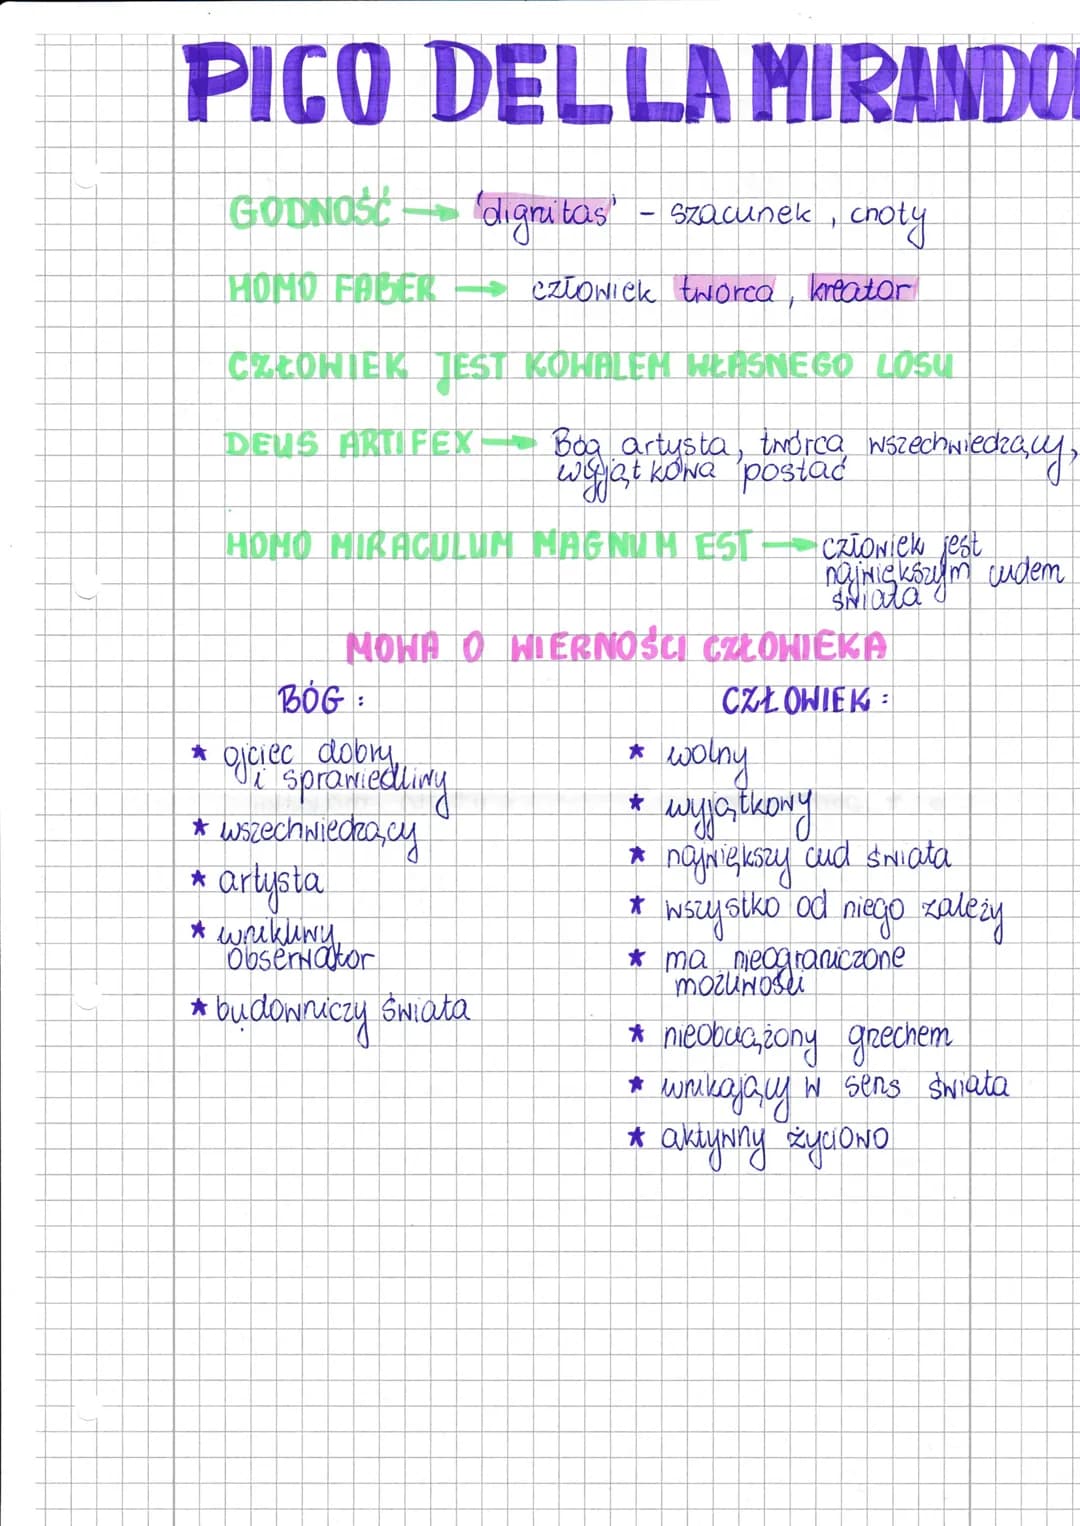 PICO DELLA MIRANDO
GODNOŚĆ → 'dignitas' - szacunek, cnoty
HOMO FABER → człowiek twórca, kreator
CZŁOWIEK JEST KOWALEM WŁASNEGO LOSU
DEUS ARTIFEX → Bóg artysta, twórca, wszechwiedzący,
wyjątkowa postać
HOMO MIRACULUM MAGNUM EST → człowiek jest
największym cudem
świata
MOWA O WIERNOŚCI CZŁOWIEKA
BÓG:
★ ojciec dobry
i sprawiedliwy
★ wszechwiedzący
★ artysta
★ wnikliwy
obserwator
★ budowniczy świata
CZŁOWIEK:
★ wolny
★ wyjątkowy
★ największy cud świata
★ wszystko od niego zależy
★ ma nieograniczone
możliwości
★ nieobciążony grzechem
★ wnikający w sens świata
★ aktywny życiowo